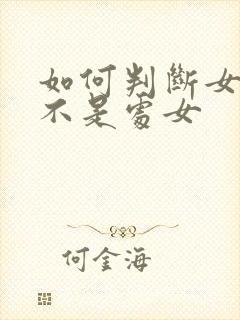 如何判斷女
不是處女
何金海